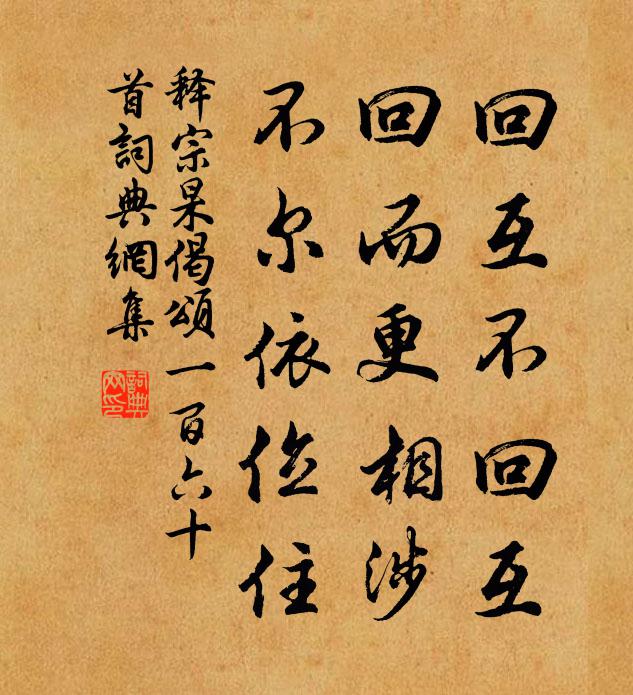 回互不回互
回而更相涉
不尔依位住
释宗杲偈頌一百六十
首詞典網集
詞典網印